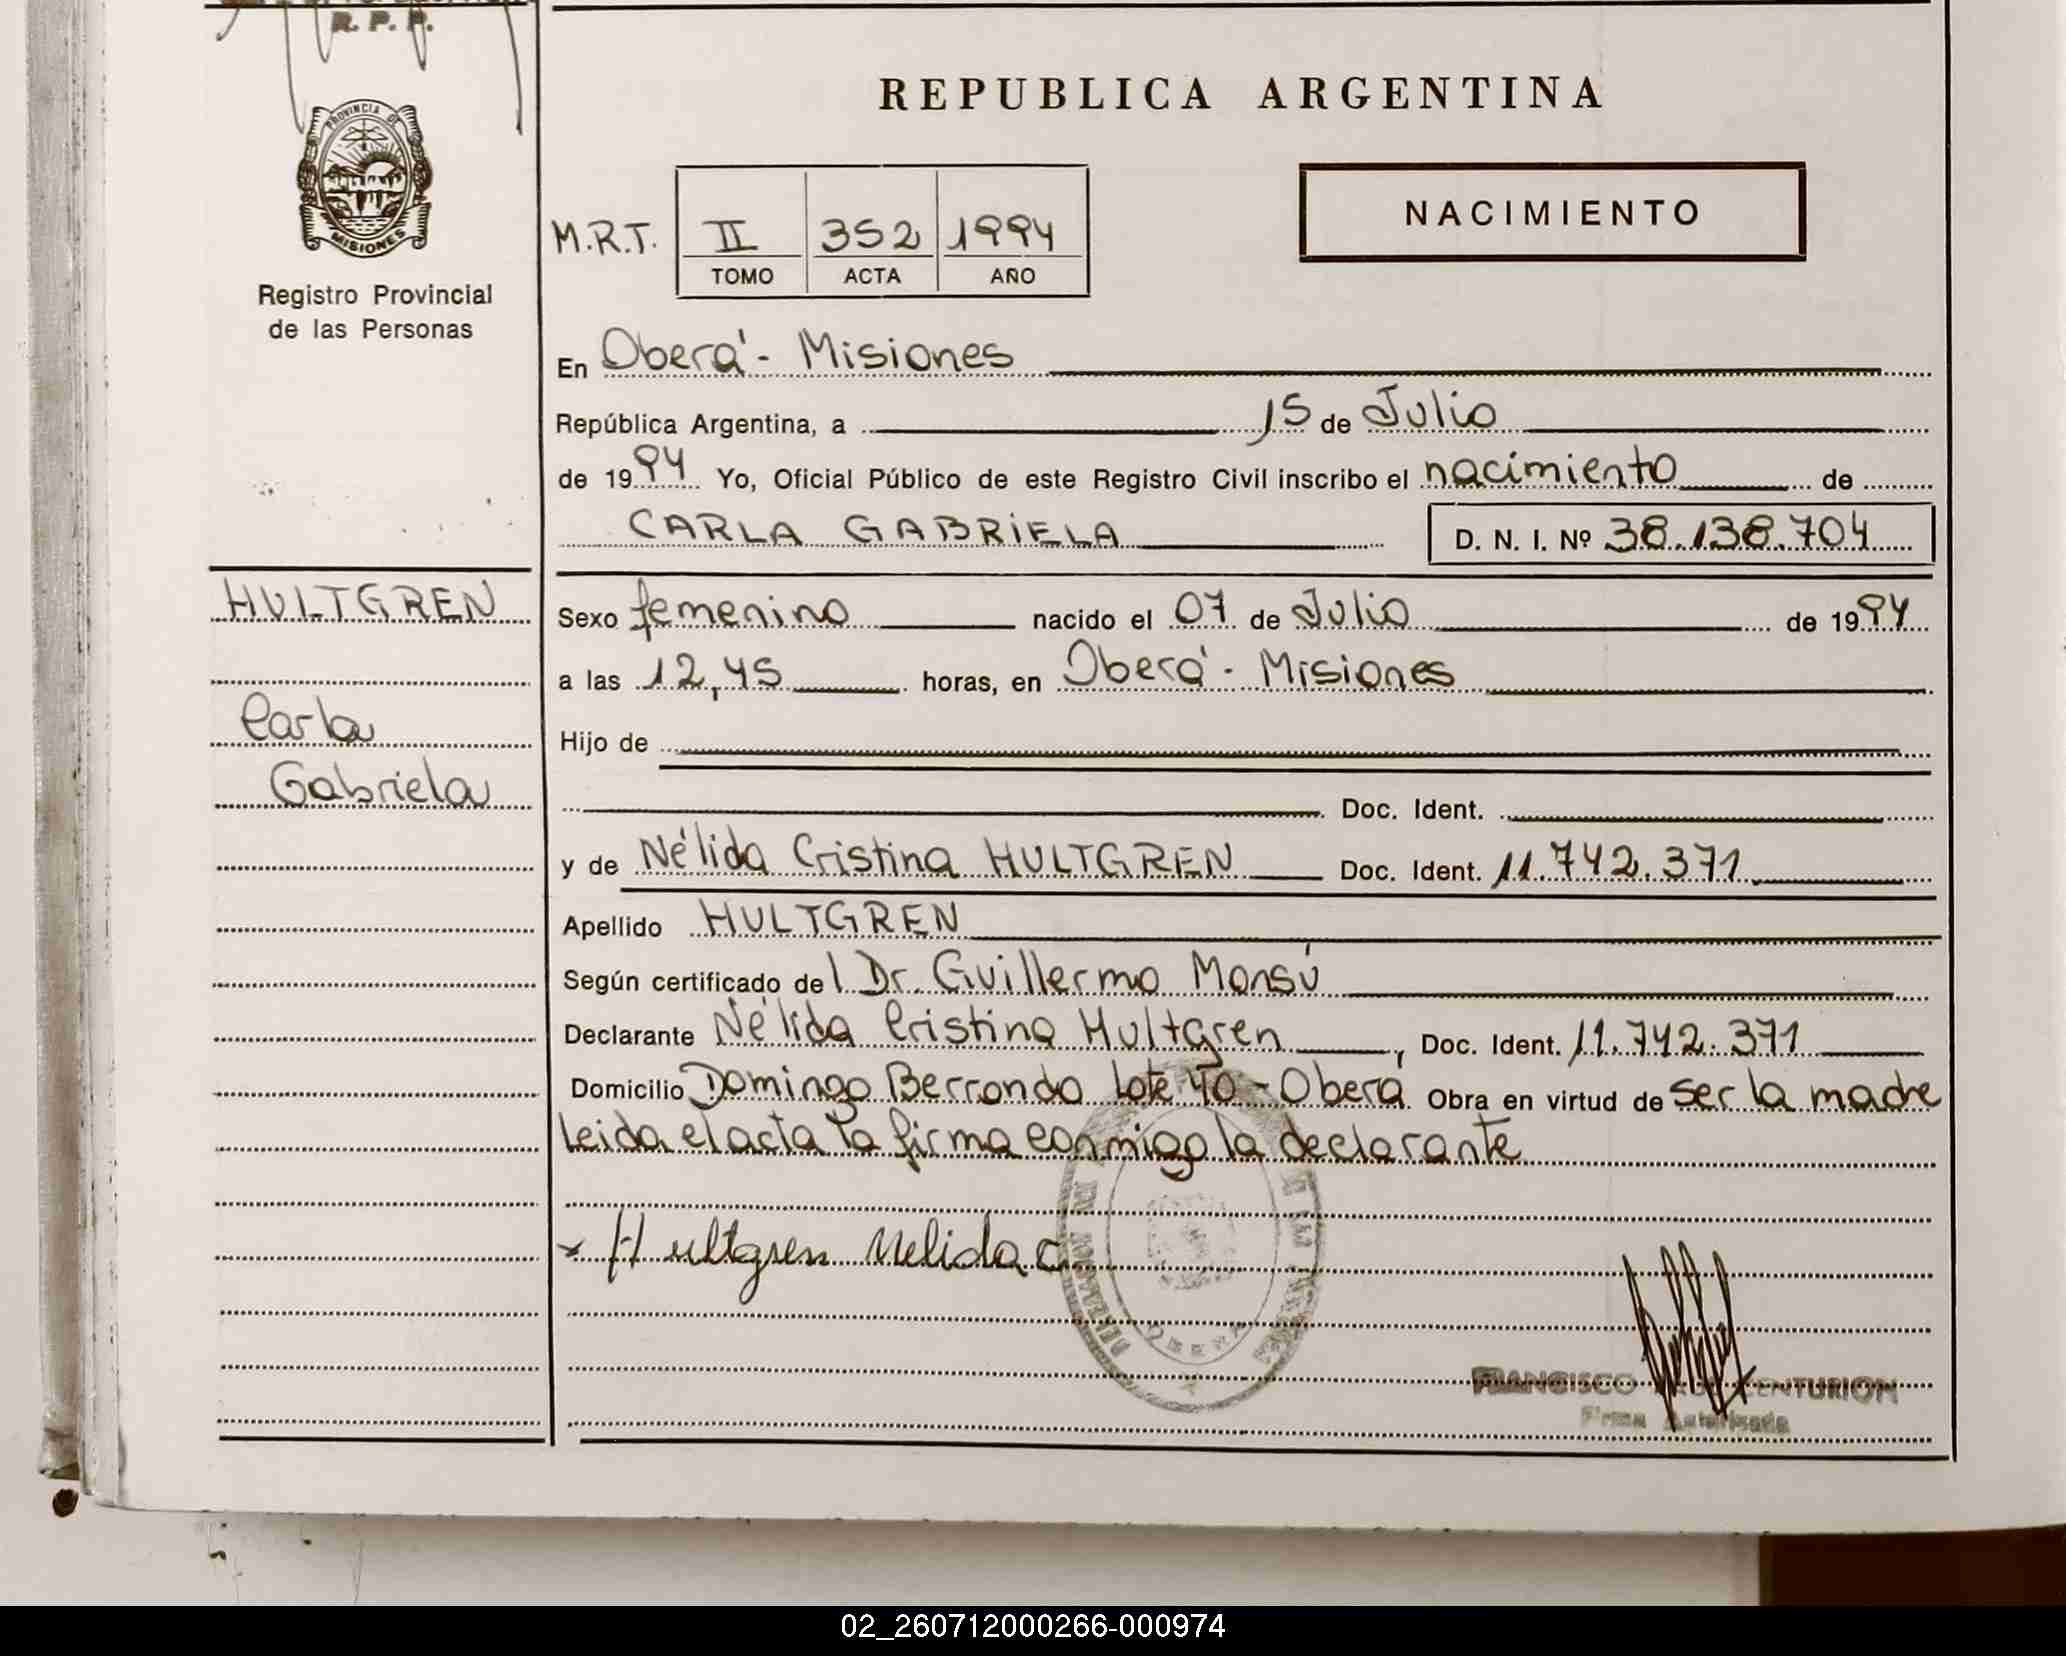 R. P. P.
PROVINCIA DE
MISIONES
Registro Provincial
de las Personas
HULTGREN
Carla
Gabriela
REPUBLICA ARGENTINA
NACIMIENTO
M.R.T. II 352 1994
TOMO ACTA AÑO
En Oberá - Misiones
República Argentina, a 15 de Julio
de 1994 Yo, Oficial Público de este Registro Civil inscribo el nacimiento de
CARLA GABRIELA D. N. I. Nº 38.138.704
Sexo femenino nacido el 07 de Julio de 1994
a las 12,45 horas, en Oberá - Misiones
Hijo de
Doc. Ident.
y de Nélida Cristina HULTGREN Doc. Ident. 11.742.371
Apellido HULTGREN
Según certificado del Dr. Guillermo Monsú
Declarante Nélida Cristina Hultgren, Doc. Ident. 11.742.371
Domicilio Domingo Berrondo Lote 40 - Oberá Obra en virtud de ser la madre
leida el acta la firma conmigo la declarante
x Hultgren Nelida C
OBERA
FRANCISCO CENTURION
Firma Autorizada
02_260712000266-000974